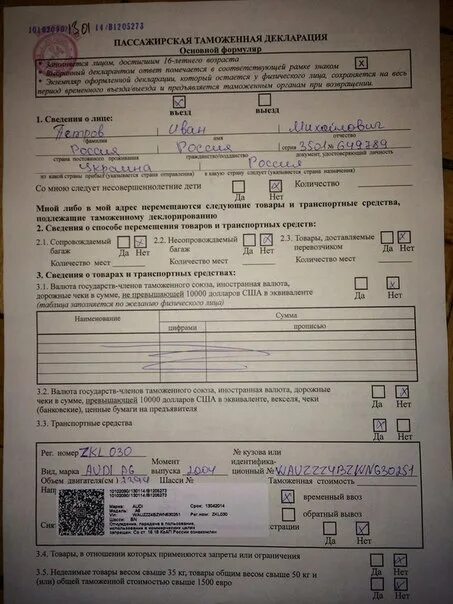 10102090/13 01 14/В1205273
ПАССАЖИРСКАЯ ТАМОЖЕННАЯ ДЕКЛАРАЦИЯ
Основной формуляр
• Заполняется лицом, достигшим 16-летнего возраста
• Выбранный декларантом ответ помечается в соответствующей рамке знаком X
• Экземпляр оформленной декларации, который остается у физического лица, сохраняется на весь
период временного въезда/выезда и предъявляется таможенным органам при возвращении.
въезд выезд
1. Сведения о лице:
Петров Иван Михайлович
фамилия имя отчество
Россия Россия серия 3501 № 649789
страна постоянного проживания гражданство/подданство документ, удостоверяющий личность
Украина Россия
из какой страны прибыл (указывается страна отправления) в какую страну следует (указывается страна назначения)
Со мною следуют несовершеннолетние дети Да Нет Количество
Мной либо в мой адрес перемещаются следующие товары и транспортные средства,
подлежащие таможенному декларированию
2. Сведения о способе перемещения товаров и транспортных средств:
2.1. Сопровождаемый багаж Да Нет 2.2. Несопровождаемый багаж Да Нет 2.3. Товары, доставляемые перевозчиком Да Нет
Количество мест Количество мест Количество мест
3. Сведения о товарах и транспортных средствах:
3.1. Валюта государств-членов таможенного союза, иностранная валюта,
дорожные чеки в сумме, не превышающей 10000 долларов США в эквиваленте Да Нет
(таблица заполняется по желанию физического лица)
Наименование Сумма
цифрами прописью
3.2. Валюта государств-членов таможенного союза, иностранная валюта, дорожные
чеки в сумме, превышающей 10000 долларов США в эквиваленте, векселя, чеки
(банковские), ценные бумаги на предъявителя Да Нет
3.3. Транспортные средства Да Нет
Рег. номер ZKL 030 № кузова или
Момент идентифика-
Вид, марка AUDI A6 выпуска 2004 ционный № WAUZZZ4BZWN630251
Объем двигателя (см³) 2394 Шасси № Таможенная стоимость
10102090/130114/В1205273
10102090/130114/В1205273
Марка: AUDI Срок: 13042014
Модель: A6
Vin: WAUZZZ4BZWN630251 Рег.Nom: ZKL030
Шасси: BN
Отчуждение, передача в пользование,
Использование в коммерческих целях
Со ст 16.18 КоАП России ознакомлен
X временный ввоз
обратный вывоз
страции Да Нет
3.4. Товары, в отношении которых применяются запреты или ограничения Да Нет
3.5. Неделимые товары весом свыше 35 кг, товары общим весом свыше 50 кг и
(или) общей таможенной стоимостью свыше 1500 евро Да Нет